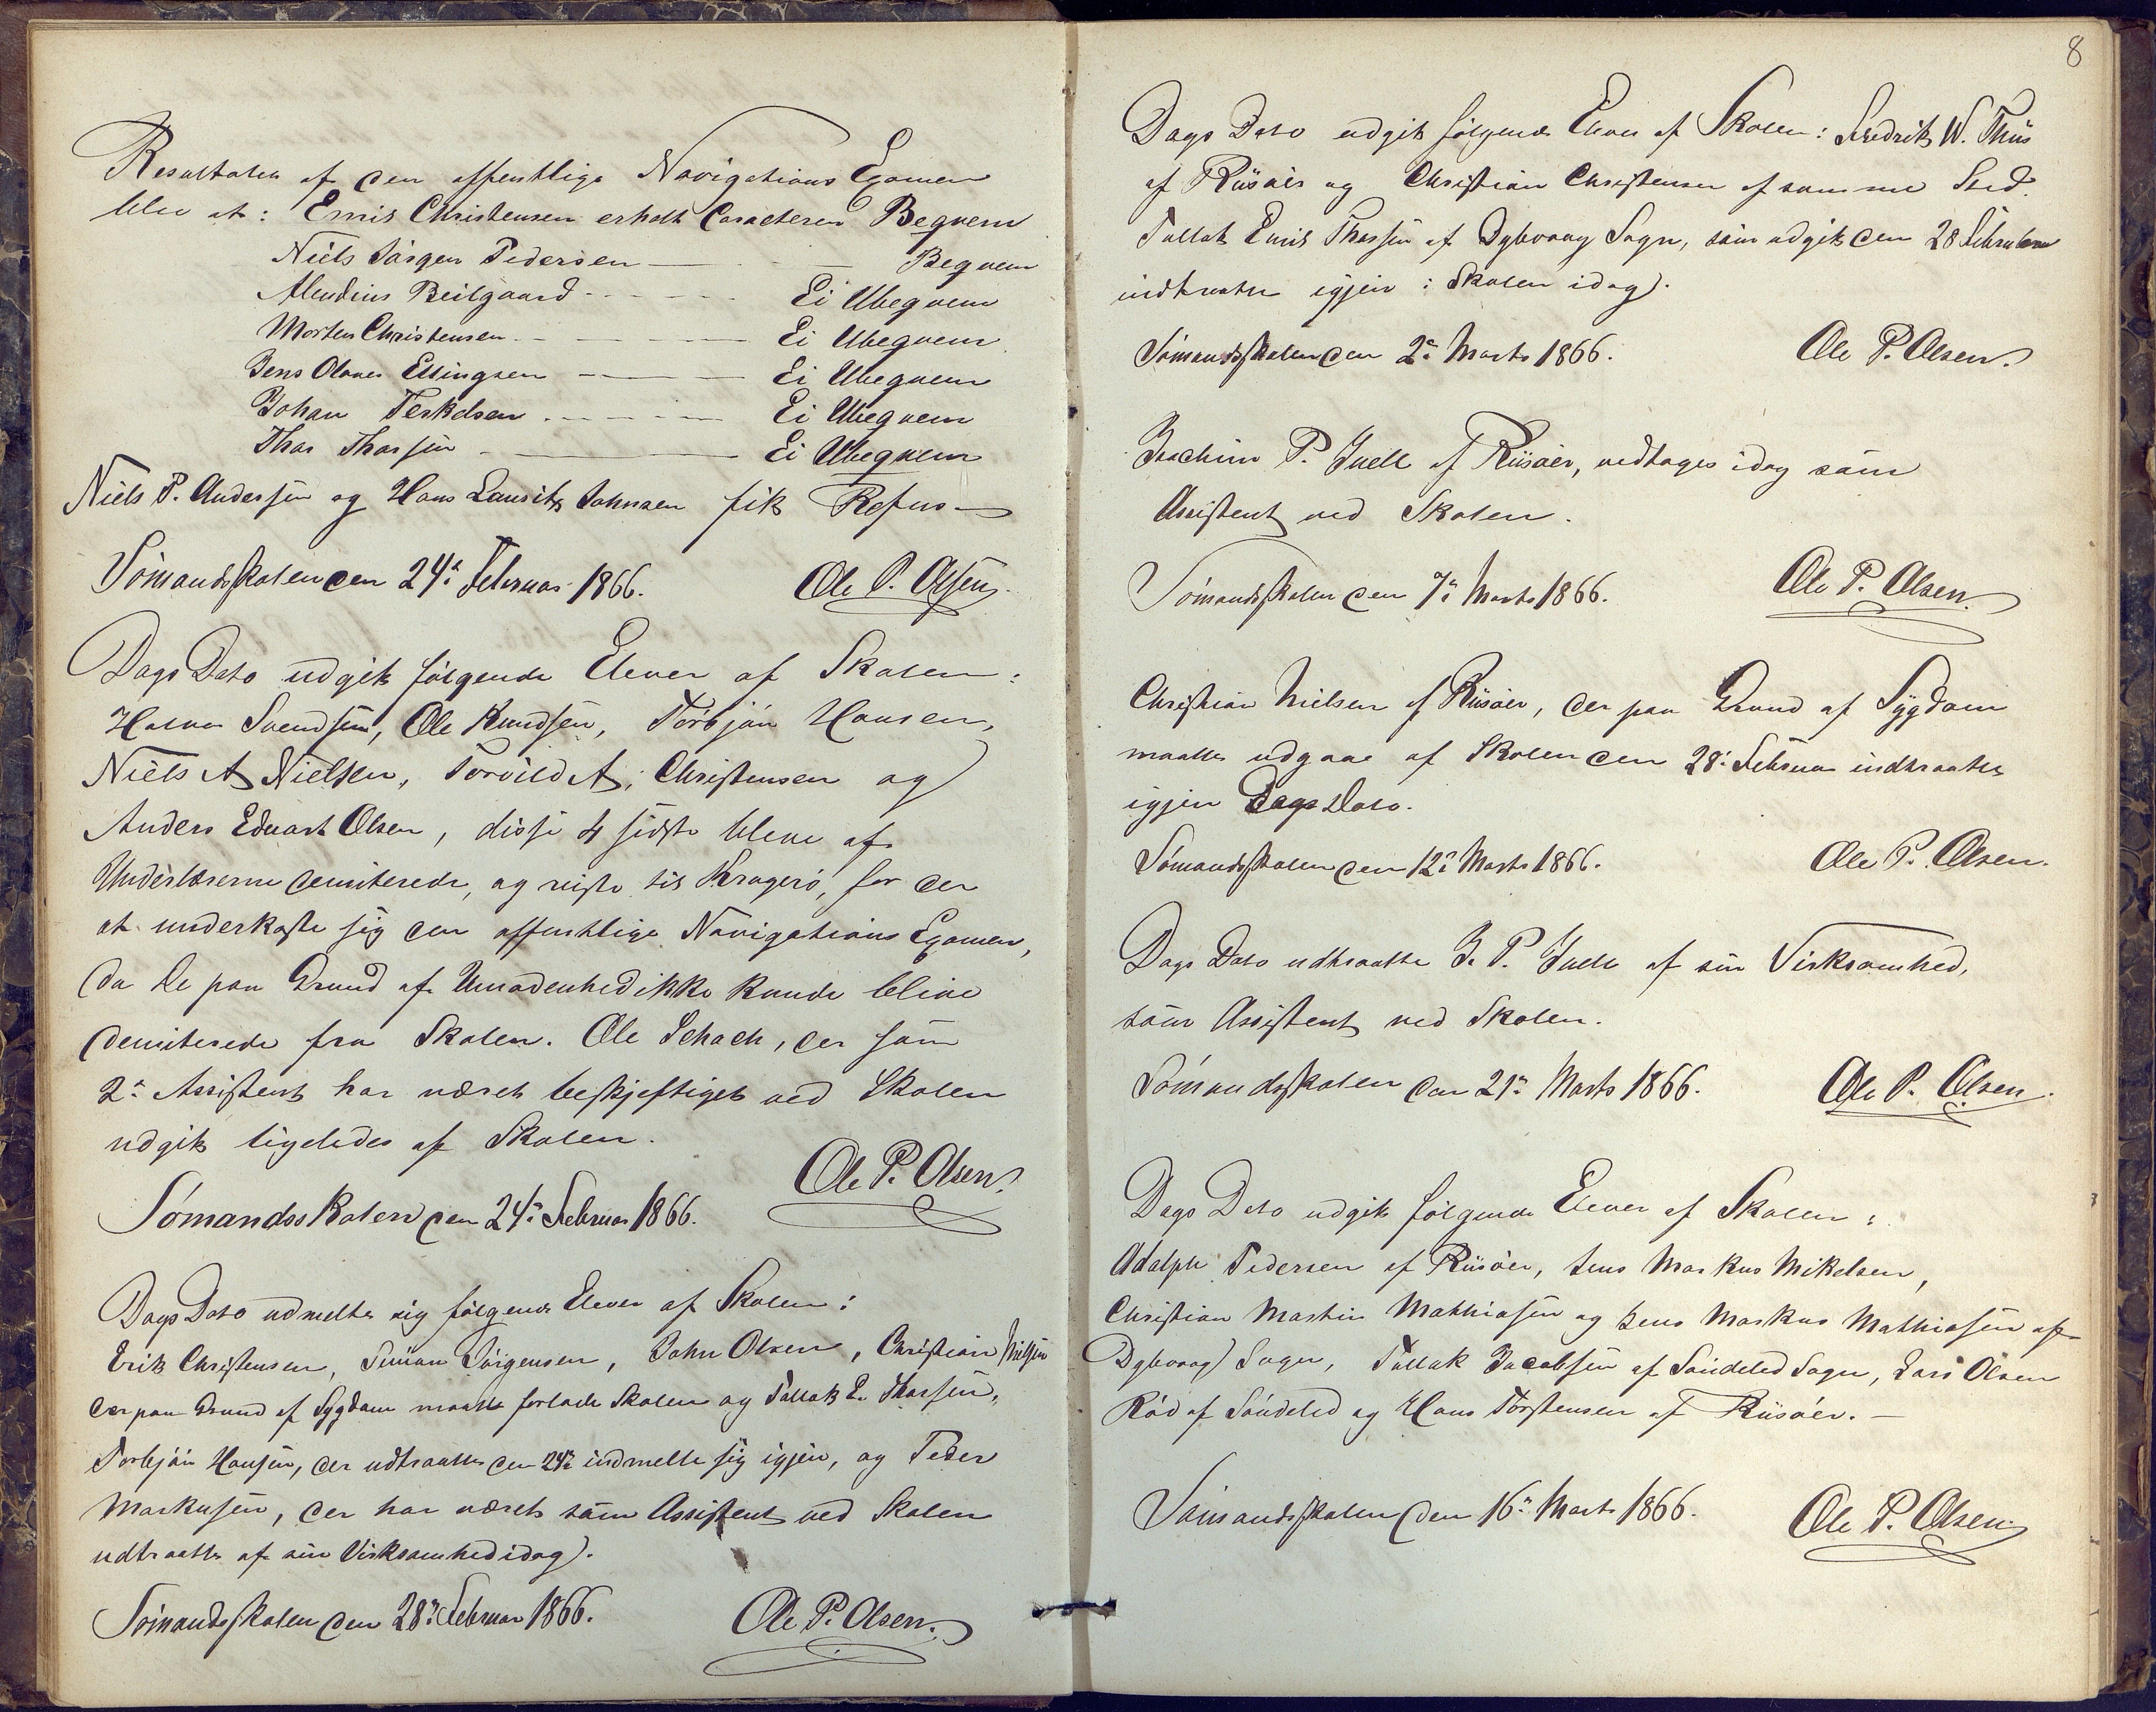 Resultaten af den offentlige Navigations Examen
blev at: Emil Christensen erholt Caracteren Beqvem
Niels Jörgen Pedersen — Beqvem
Beilgaard - - - - Ei Ubeqvem
Morten Christensen - - - Ei Ubeqvem
Jens Olaves Ellingsen — Ei Ubeqvem
Johan Terkelsen - - - - Ei Ubeqvem
Thor Thorsen - — Ei Ubeqvem
Niels P. Andersen og Hans Laurits Johnsen fik Refus.—
Sömandsskolen den 24de Februar 1866. Ole P. Olsen.
Dags Dato udgik følgende Elever af Skolen:
Halvor Svendsen, Ole Knudsen, Torbjön Hansen,
Niels A Nielsen, Torvild A. Christensen og
Anders Edvart Olsen, disse 4 sidste bleve af
Underlærerne demiterede, og reiste til Kragerö, for der
at underkaste sig den offentlige Navigations Examen,
da de paa Grund af Umodenhed ikke kunde blive
demiterede fra Skolen. Ole Schach, der som
2n Assistent har været beskjeftiget ved Skolen
udgik ligeledes af Skolen.
Ole P. Olsen.
Sömandsskolen den 24de Februar 1866.
Dags Dato udmelte sig følgende Elever af Skolen:
Erik Christensen, Simon Jörgensen, John Olsen, Christian Nielsen
der paa Grund af Sygdom maatte forlade Skolen og Tallak E. Thorsen,
Torbjön Hansen, der udtraatte den 24de indmelte sig igjen, og Peder
Markusen, der har været som Assistent ved Skolen
udtraatte af sin Virksomhed idag.
Sömandsskolen den 28de Februar 1866. Ole P. Olsen.
8
Dags Dato udgik følgende Elever af Skolen: Fredrik W. Thiis
af Riisöer og Christian Christensen af samme Sted.
Tallak Emil Thorsen af Dybvaag Sogn, som udgik den 28 Februar
indtraatte igjen i Skolen idag.
Sömandsskolen den 2n Marts 1866. Ole P. Olsen.
Joachim P. Juell af Riisöer, vedtages idag som
Assistent ved Skolen.
Sömandsskolen den 7n Marts 1866. Ole P. Olsen.
Christian Nielsen af Riisöer, der paa Grund af Sygdom
maatte udgaae af Skolen den 28: Februar indtraatte
igjen Dags Dato.
Sömandsskolen den 12n Marts 1866. Ole P. Olsen.
Dags Dato udtraatte J. P. Juell af sin Virksomhed,
som Assistent ved Skolen.
Sömandsskolen den 21n Marts 1866. Ole P. Olsen.
Dags Dato udgik følgende Elever af Skolen:
Adolph Pedersen af Riisöer, Jens Markus Mikelsen,
Christian Martin Mathiasen og Jens Markus Mathiasen af
Dybvaag Sogn, Tallak Jacobsen af Söndeled Sogn, Lars Olsen
Röd af Söndeled og Hans Torstensen af Riisöer.—
Sömandsskolen den 16n Marts 1866. Ole P. Olsen.